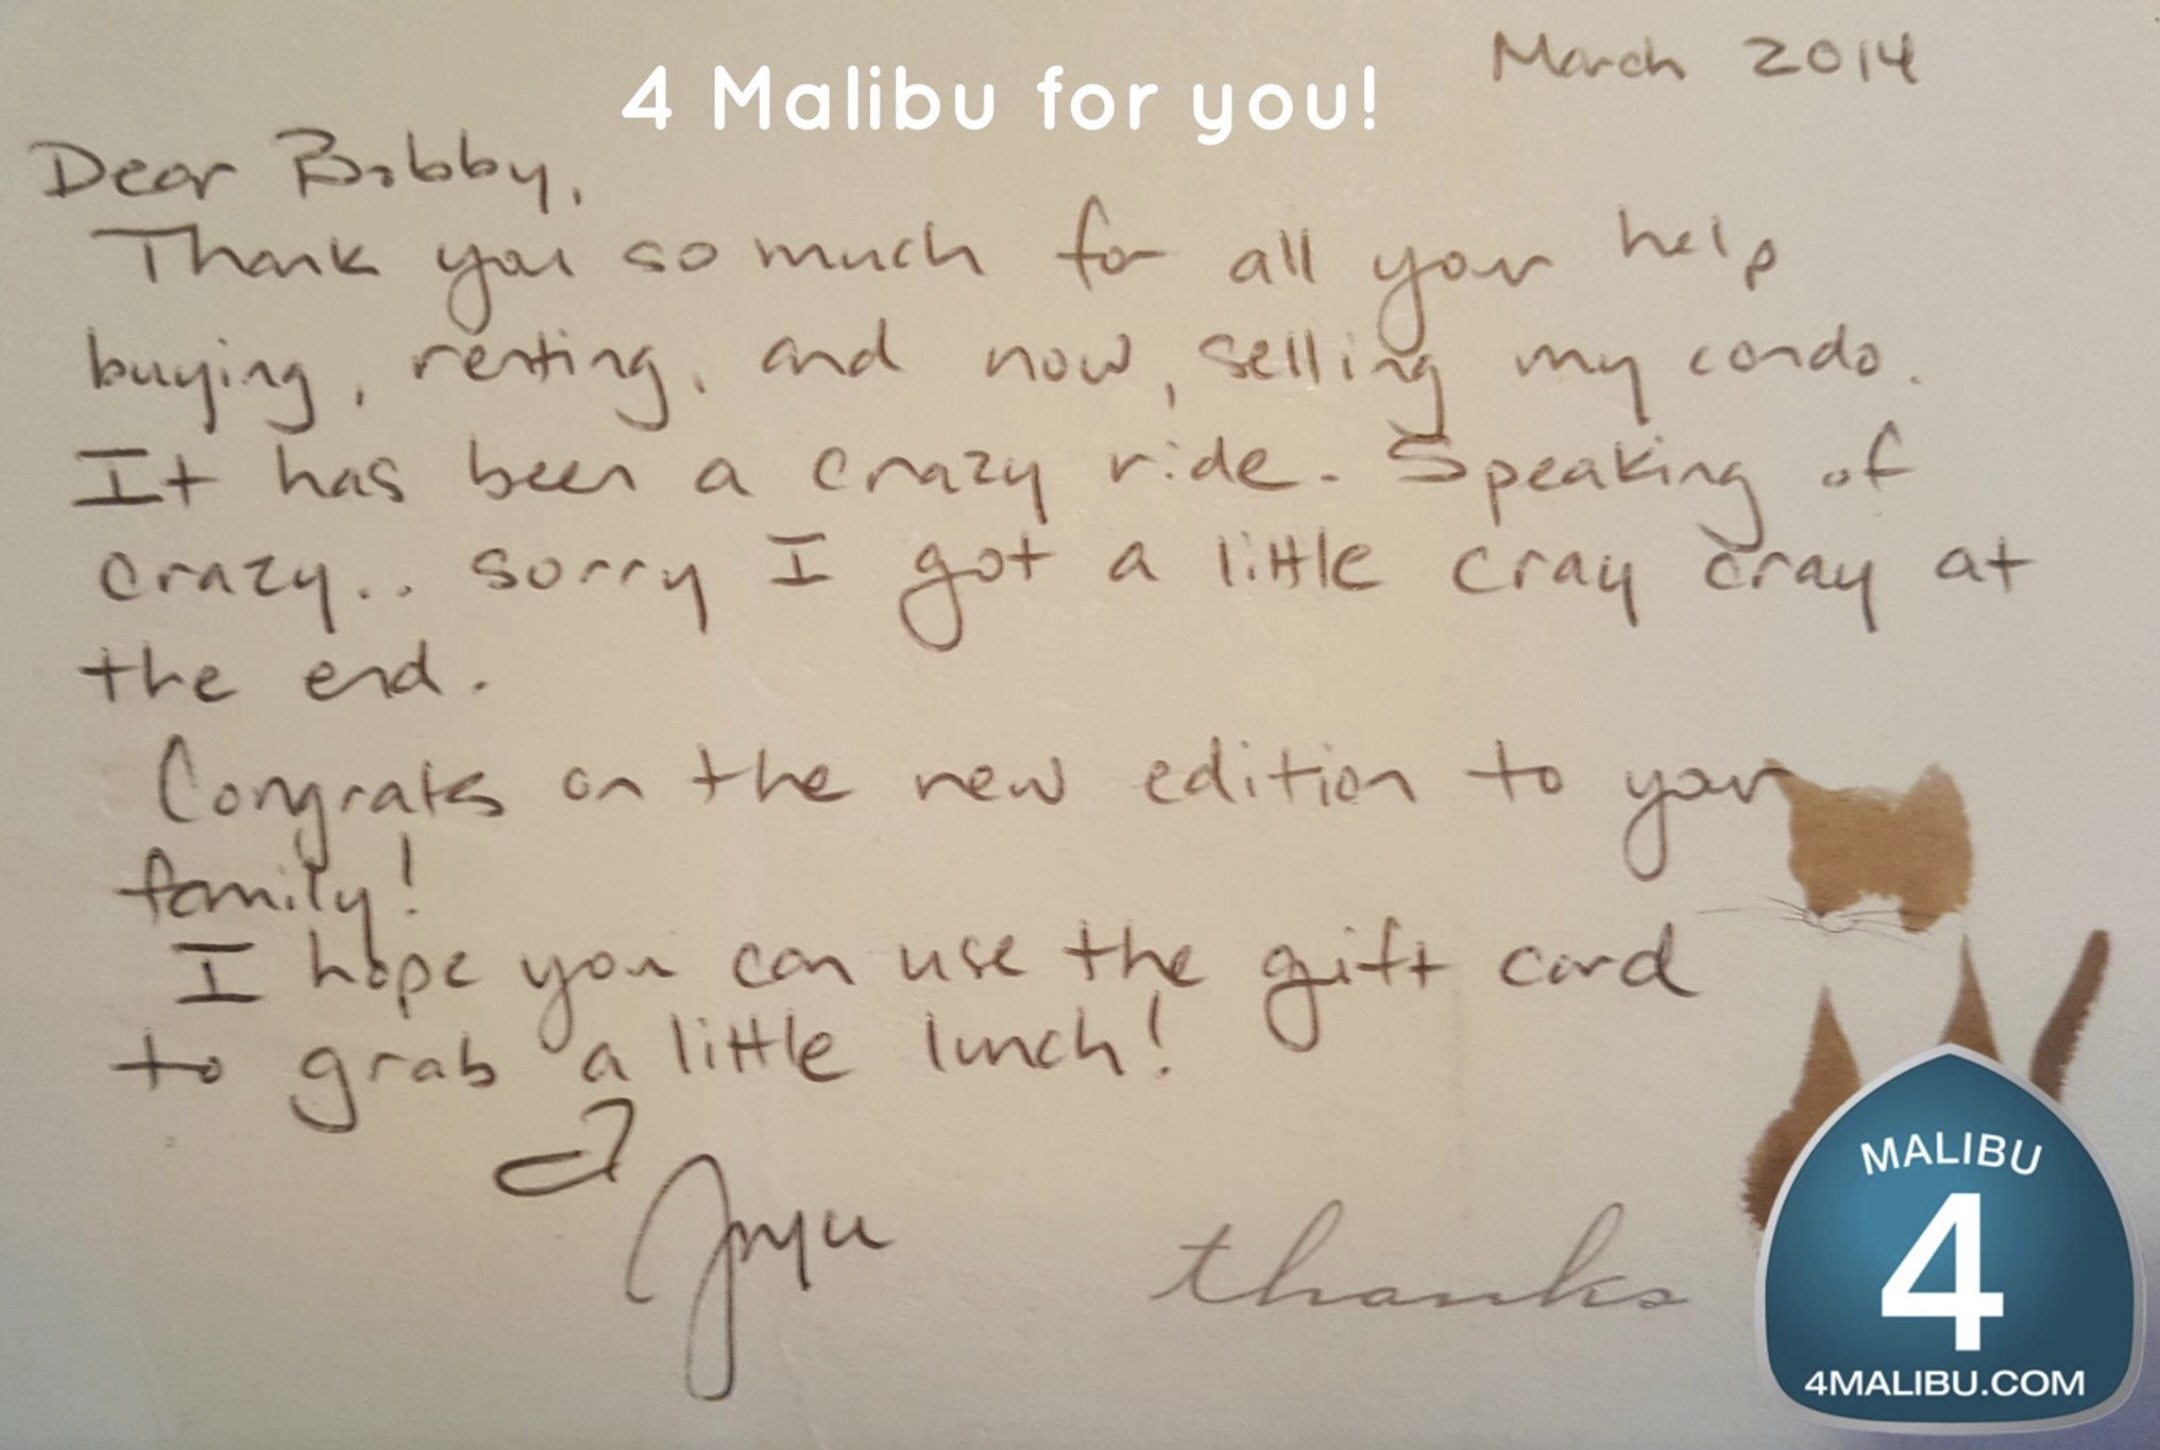 March 2014
4 Malibu for you!
Dear Bobby,
Thank you so much for all your help
buying, renting, and now, selling my condo.
It has been a crazy ride. Speaking of
crazy.. sorry I got a little cray cray at
the end.
Congrats on the new edition to your
family!
I hope you can use the gift card
to grab a little lunch!
thanks
MALIBU
4
4MALIBU.COM